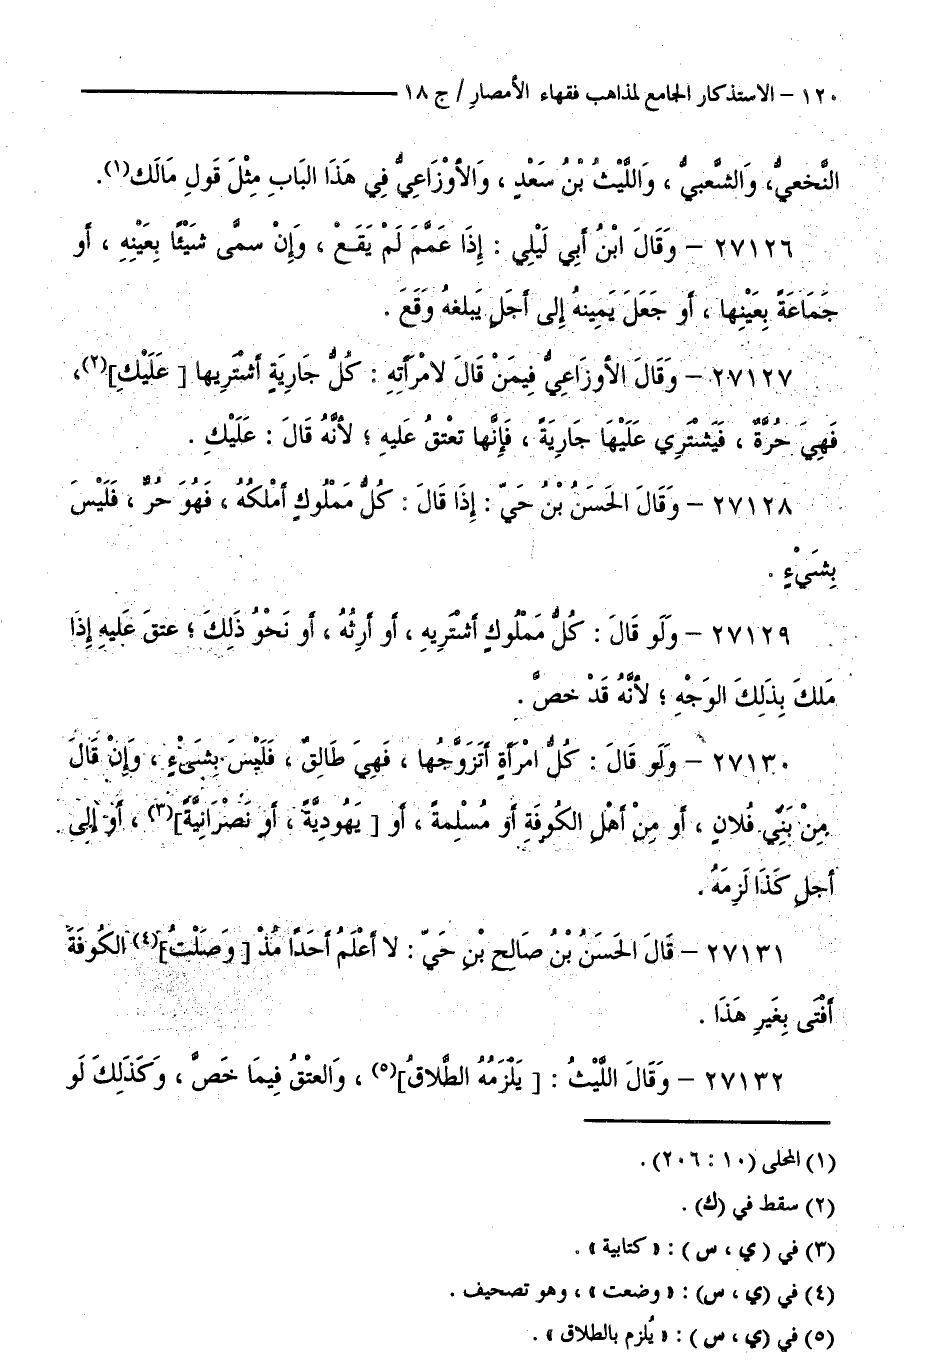 ١٢٠ – الاستذكار الجامع لمذاهب فقهاء الأمصار / ج ١٨
النَّخعيُّ، وَالشَّعبيُّ ، وَاللَّيْثُ بْنُ سَعْدٍ ، وَالأوْزَاعِيُّ فِي هَذَا البَابِ مِثْلَ قَولِ مَالك(١).
٢٧١٢٦ – وَقَالَ ابْنُ أَبِي لَيْلِي : إِذَا عَمَّمَ لَمْ يَقَعْ ، وَإِنْ سمَّى شَيْئًا بِعَيْنِهِ ، أَو
جَمَاعَةً بِعَيْنِها ، أَو جَعَلَ يَمِينهُ إِلى أَجَلٍ يَبلغهُ وَقَعَ .
٢٧١٢٧ – وَقَالَ الأوزَاعِيُّ فِيمَنْ قَالَ لامْرَأَتِهِ : كُلُّ جَارِيَةٍ أَشْتَرِيها [ عَلَيْكِ](٢)،
فَهِيَ حُرَّةٌ ، فَيَشْتَرِي عَلَيْهَا جَارِيَةً ، فَإِنَّها تعْتقُ عَليهِ ؛ لأنَّهُ قَالَ : عَلَيْكِ .
٢٧١٢٨ – وَقَالَ الحَسَنُ بْنُ حَيّ : إِذَا قَالَ : كُلُّ مَمْلُوكٍ أَمْلكُهُ ، فَهُوَ حُرٌّ ، فَلَيْسَ
بِشَيْءٍ .
٢٧١٢٩ – وَلَو قَالَ : كُلُّ مَمْلُوكٍ أَشْتَرِيهِ ، أَو أَرِثُهُ ، أَو نَحْوُ ذَلِكَ ؛ عتقَ عَليهِ إِذَا
مَلكَ بِذَلِكَ الوَجْهِ ؛ لأنَّهُ قَدْ خصَّ .
٢٧١٣٠ – وَلَو قَالَ : كُلُّ امْرَأَةٍ أَتَزَوَّجُها ، فَهِيَ طَالِقٌ ، فَلَيْسَ بِشَيْءٍ ، وَإِنْ قَالَ
مِنْ بَنِي فُلانٍ ، أَو مِنْ أَهْلِ الكُوفَةِ أَو مُسْلِمةً ، أَو [ يَهُودِيَّةً ، أَو نَصْرَانِيَّةً](٣) ، أَو إِلى
أَجلِ كَذَا لَزِمَهُ .
٢٧١٣١ – قَالَ الحَسَنُ بْنُ صَالِحِ بْنِ حَيّ : لا أَعْلَمُ أَحَدًا مُذْ [ وَصَلْتُ](٤) الكُوفَةَ
أَفْتَى بِغَيرِ هَذَا .
٢٧١٣٢ – وَقَالَ اللَّيْثُ : [ يَلْزَمُهُ الطَّلاقُ](٥) ، وَالعتْقُ فِيمَا خَصَّ ، وَكَذَلِكَ لَو
(١) المحلى (١٠ : ٢٠٦) .
(٢) سقط في (ك) .
(٣) في ( ي ، س ) : « كتابية » .
(٤) في (ي ، س) : « وضعت » ، وهو تصحيف .
(٥) في (ي ، س ) : « يُلزم بالطلاق » .